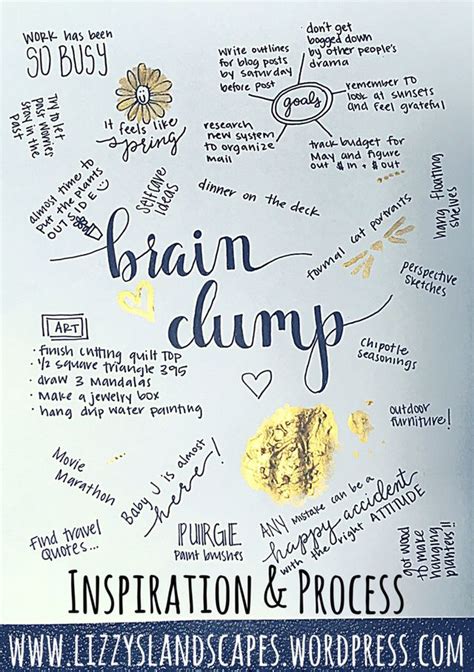 WORK has been
SO BUSY
Try to let
past worries
stay in the
past
it feels like
spring
write outlines
for blog posts
by Saturday
before post
don't get
bogged down
by other people's
drama
goals
remember TO
look at sunsets
and feel grateful
research
new system
to organize
mail
track budget for
May and figure
out $ in + $ out
almost time to
Put the plants
OUTSIDE
selfcare
ideas
dinner on the deck
hang floating
shelves
formal cat portraits
perspective
sketches
brain
dump
ART
• finish cutting quilt TOP
• 1/2 square triangle 395
• draw 3 Mandalas
• Make a jewelry box
• hang drip water painting
Chipotle
seasonings
outdoor
furniture!
Movie
Marathon
Baby J is almost
here!
Find travel
Quotes...
PURGE
Paint brushes
ANY mistake can be a
happy accident
with the right ATTITUDE
got wood
to make
hanging
planters!!
INSPIRATION & PROCESS
WWW.LIZZYSLANDSCAPES.WORDPRESS.COM